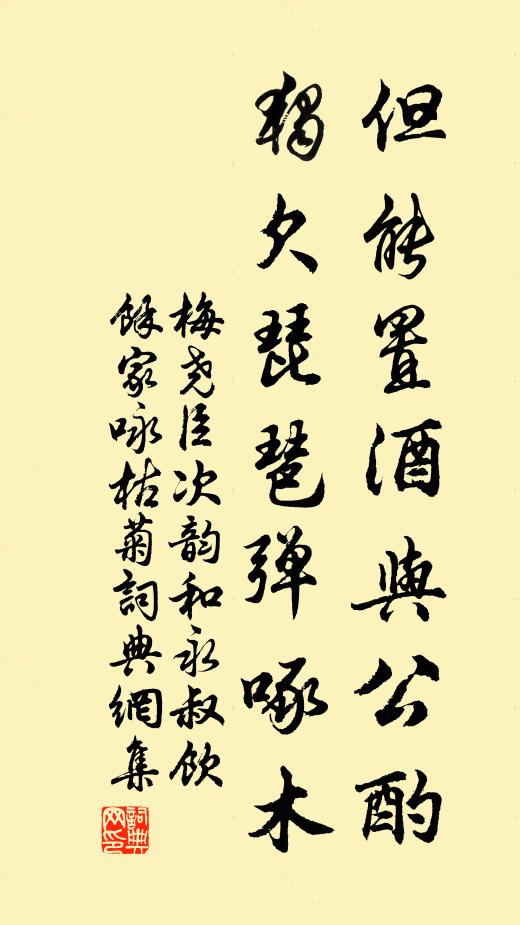 但能置酒與公酌
獨欠琵琶弹啄木
梅尧臣次韵和永叔飲
餘家咏枯菊詞典網集
詞典
网印